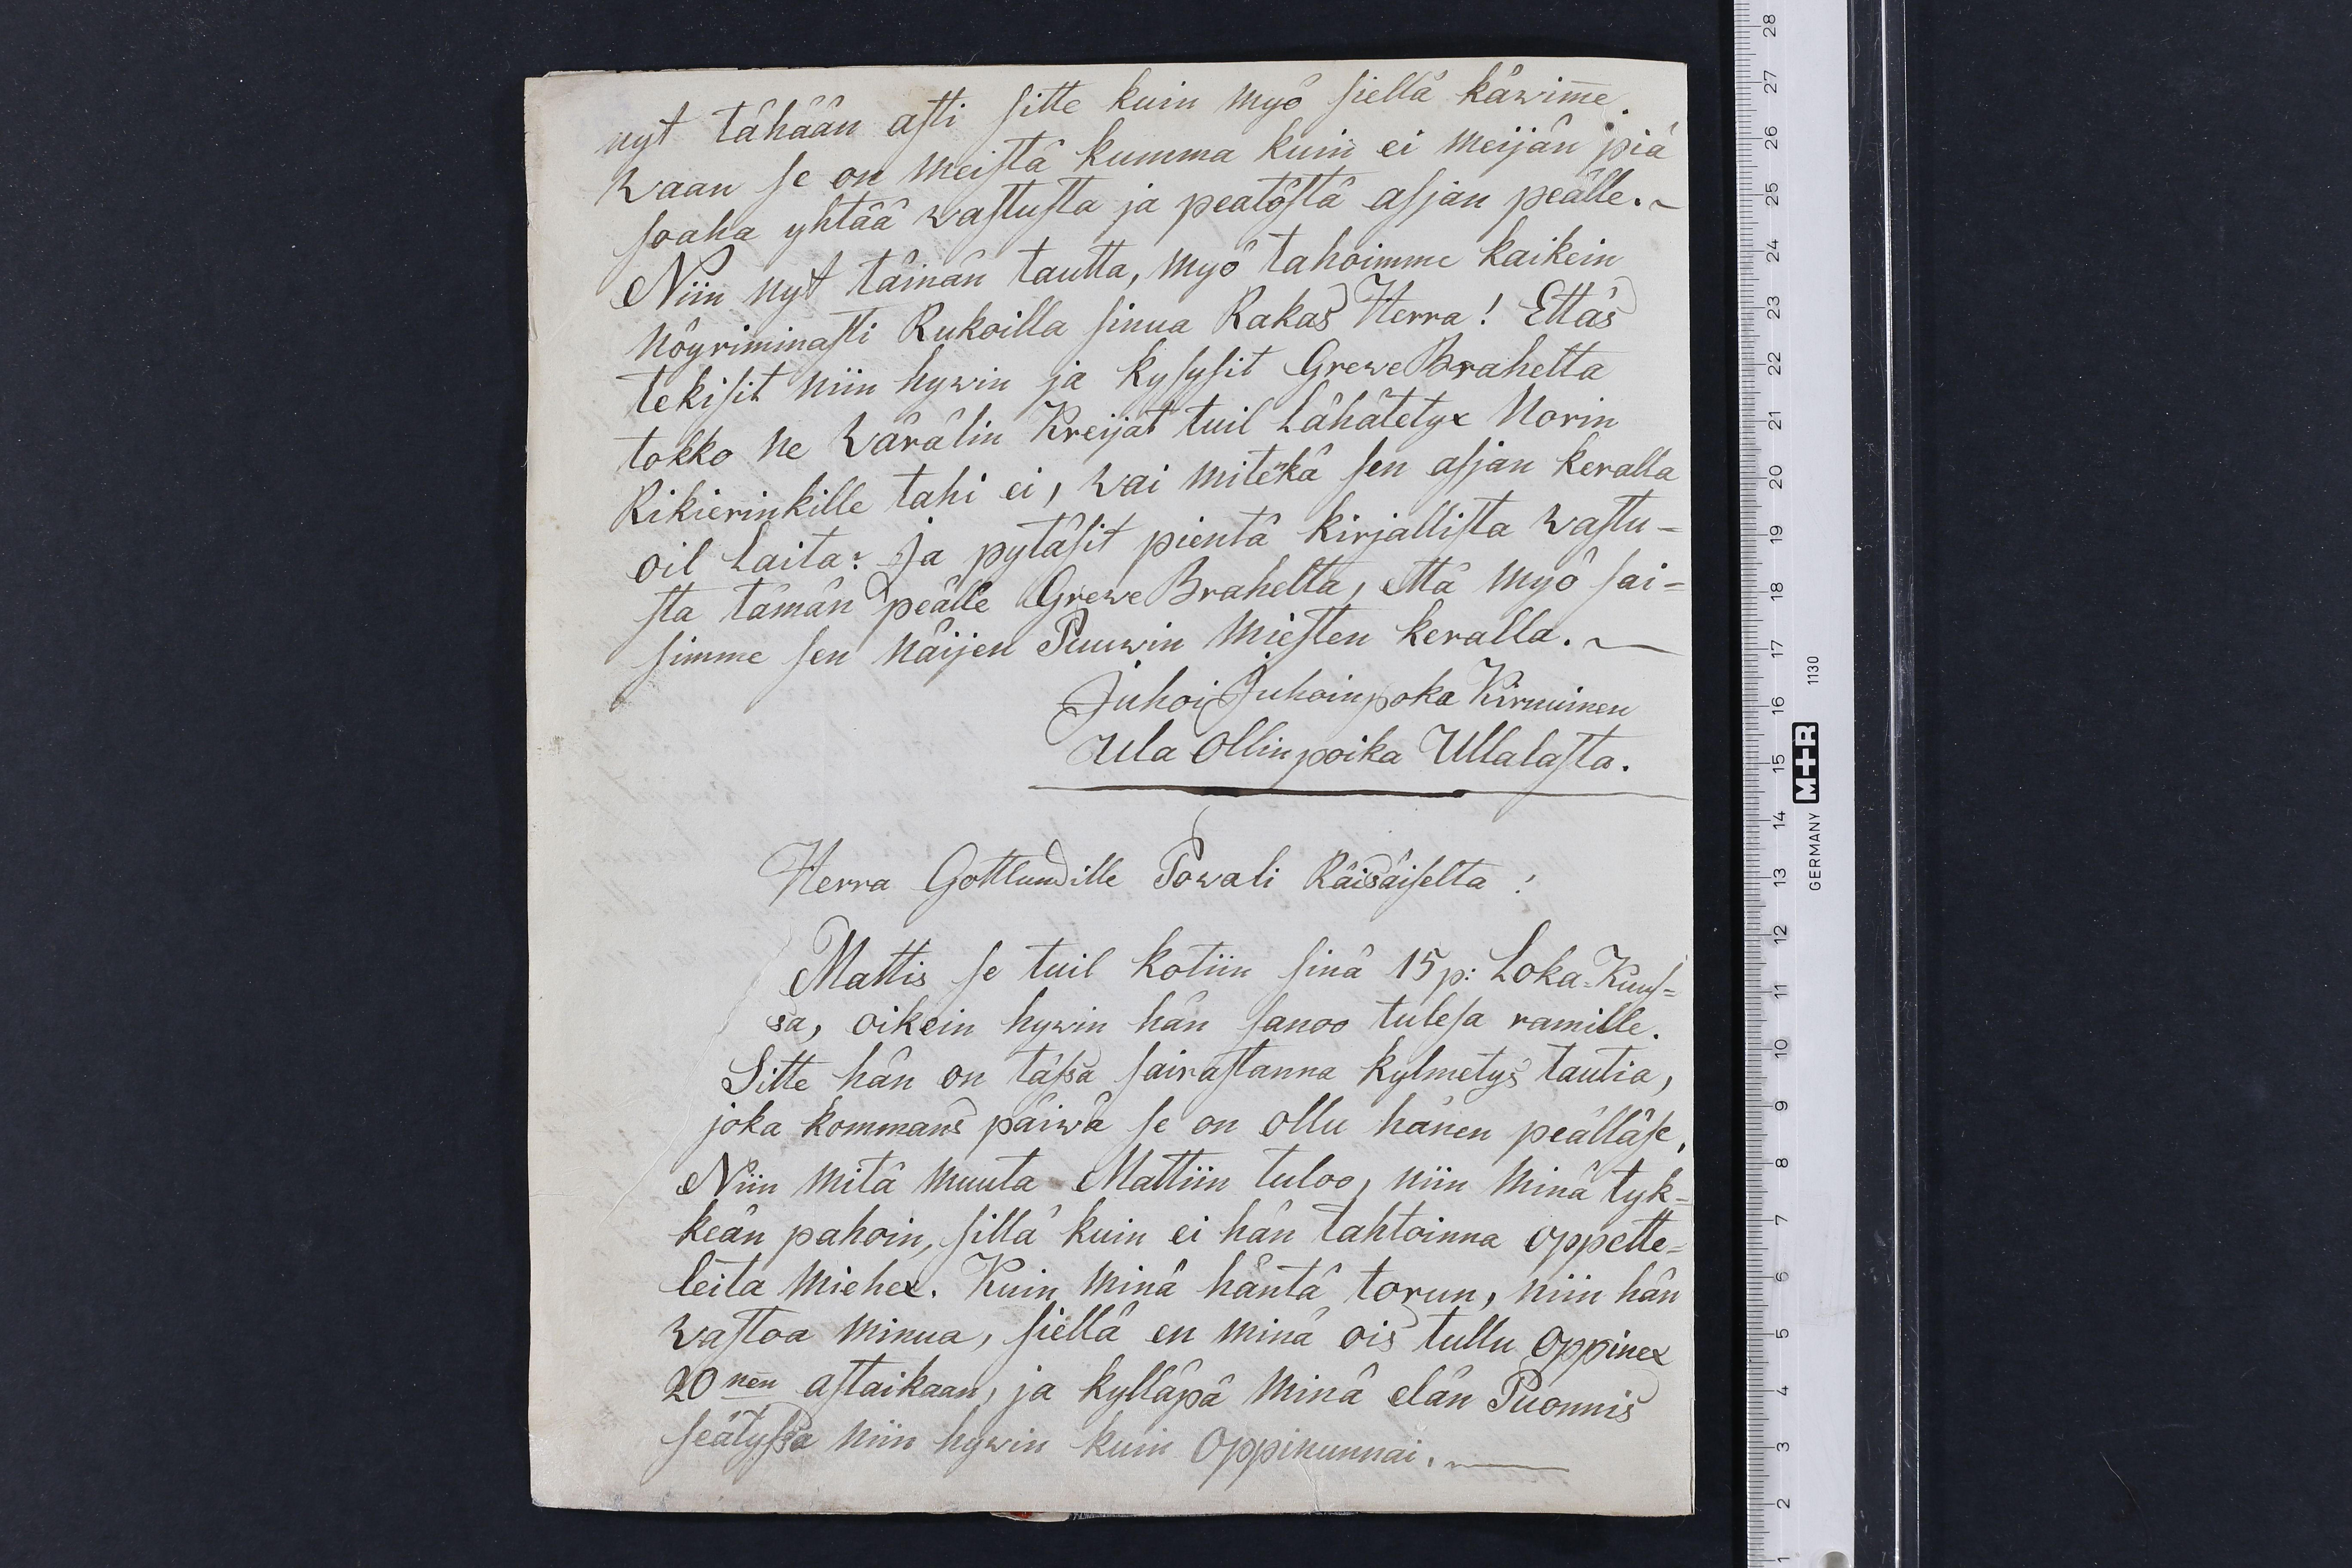 nyt tähään asti sitte kuin myö siellä käwim̅e.
waan se on meistä kumma kuin ei meijän piä
soaha yhtää wastusta ja peatöstä asjan peälle.
Niin nyt tämän tautta, myö tahoimme kaikein
nöyriminasti Rukoilla sinua Rakas Herra! Ettäs
tekisit niin hywin ja kysysit Grewe Brahelta
tokko ne Wärälin Kreijat tuil Lähätetyx Norin
Rikierinkille tahi ei, wai mitenkä sen asjan keralla
oil Laita? Ja pytäsit pientä kirjallista wastu=
sta tämän peälle Grewe Brahelta, että myö sai=
simme sen näijen Puuwin miesten keralla.
Juhoi Juhoinpoka Kirnuinen
Ula Ollinpoika Ullalasta.
Herra Gottlundille Powali Räisäiselta!
Mattis se tuil kotiin sinä 15 p: Loka-Kuus=
sa, oikein hywin hän sanoo tulesa ramille.
Sitte hän on tässä sairastanna kylmetys tautia,
joka kommans päiwä se on ollu hänen peälläse,
Niin mitä muuta Mattiin tuloo, niin minä tyk=
keän pahoin, sillä kuin ei hän tahtoinna oppette=
leita miehex. Kuin minä häntä torun, niin hän
wastoa minua, siellä en minä ois tullu Oppinex
20nen astaikaan, ja kylläpä minä elän Puonnis
seätyssä niin hywin kuin Oppinunnai.
28
27
26
25
24
23
22
21
20
19
18
17
16
15
14
13
12
11
10
9
8
7
6
5
4
3
2
1
GERMANY M+R 1130